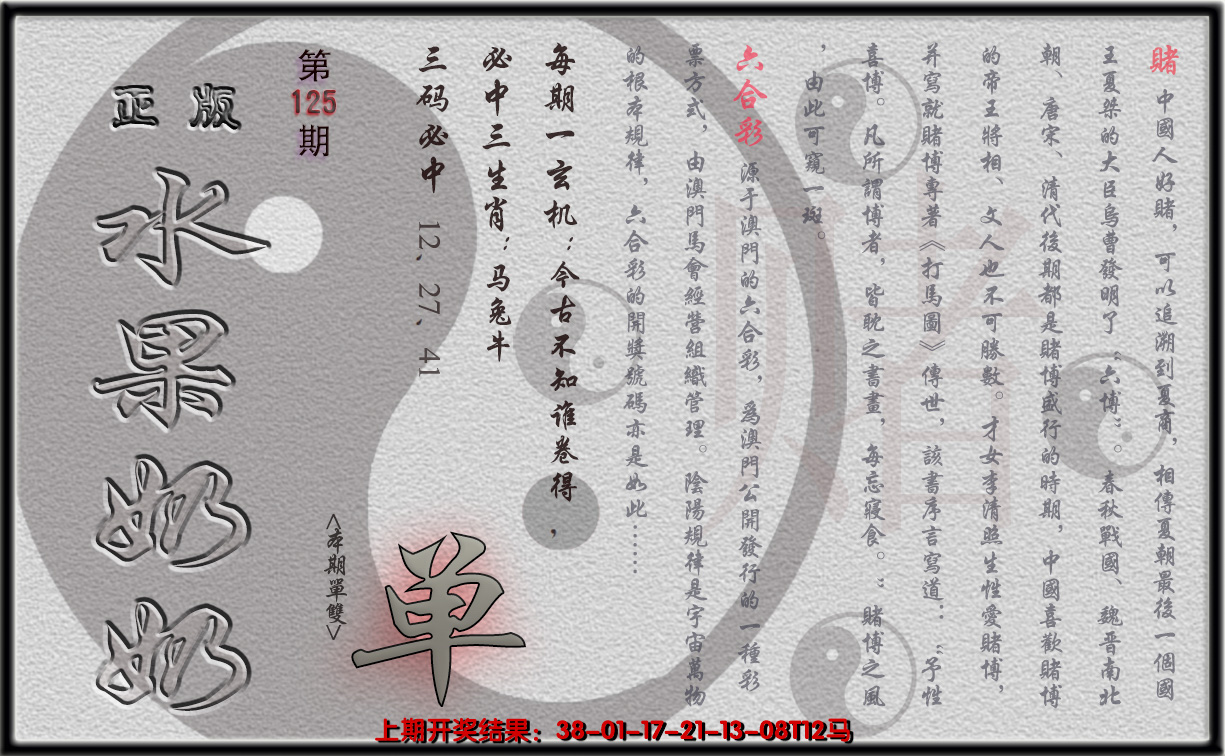 賭 中國人好賭，可以追溯到夏商，相傳夏朝最後一個國
王夏桀的大臣烏曹發明了“六博”。春秋戰國、魏晋南北
朝、唐宋、清代後期都是賭博盛行的時期，中國喜歡賭博
的帝王將相、文人也不可勝數。才女李清照生性愛賭博，
并寫就賭博專著《打馬圖》傳世，該書序言寫道：“予性
喜博。凡所謂博者，皆耽之書畫，每忘寢食。”賭博之風
，由此可窺一斑。
六合彩 源于澳門的六合彩，爲澳門公開發行的一種彩
票方式，由澳門馬會經營組織管理。陰陽規律是宇宙萬物
的根本規律，六合彩的開獎號碼亦是如此……
每期一玄机：今古不知谁卷得，
必中三生肖：马兔牛
三码必中 12、27、41
第
125
期
正版
水果奶奶
<本期單雙>
单
上期开奖结果：38-01-17-21-13-08T12马